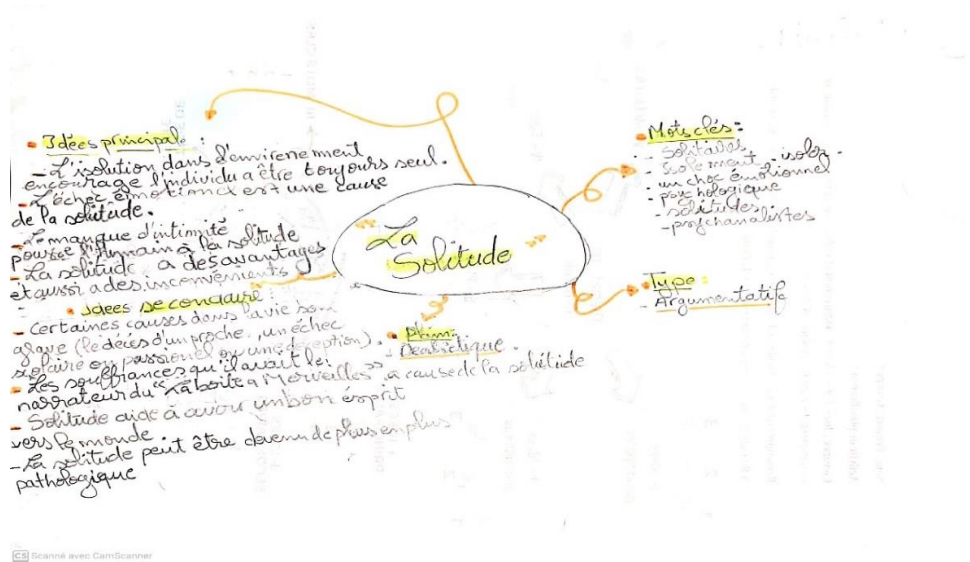 La
Solitude
• Idées principal :
- L'isolution dans d'envirenement
encourage l'individu a être toujours seul.
- L'échec émotionel est une cause
de la solitude.
- Le manque d'intimité
pousse l'humain à la solitude
- La solitude a des avantages
et aussi a des inconvénients
• Idees secondaire :
- Certaines causes dans la vie son
grave (le décès d'un proche, un échec
scolaire ou passionel ou une déception).
- Les souffrances qu'il avait le
narrateur du "La boite a Merveilles" a cause de la solitude
- Solitude aide à avoir un bon ésprit
vers le monde.
- La solitude peut être devenu de plus en plus
pathologique
• Mots clés :
- Solitaires
- Isolement - isoler.
- un choc émotionnel
- psychologique
- solitudes
- psychanalistes
• Type :
- Argumentatif
CS Scanné avec CamScanner